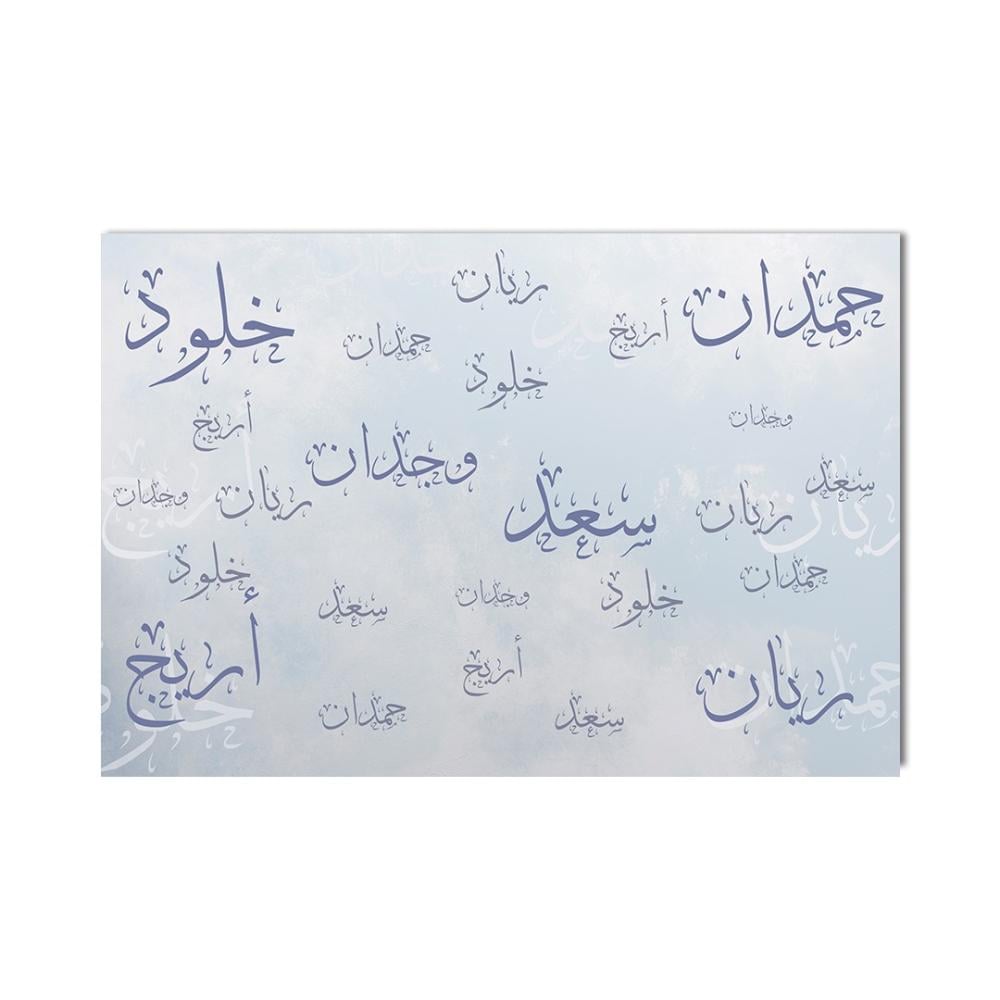 حمدان
ريان
خلود
أريج
حمدان
خلود
وجدان
أريج
وجدان
سعد
سعد
ريان
ريان
وجدان
حمدان
خلود
خلود
وجدان
سعد
أريج
ريان
أريج
حمدان
سعد
حمدان
أريج
ريان
حمدان
خلود